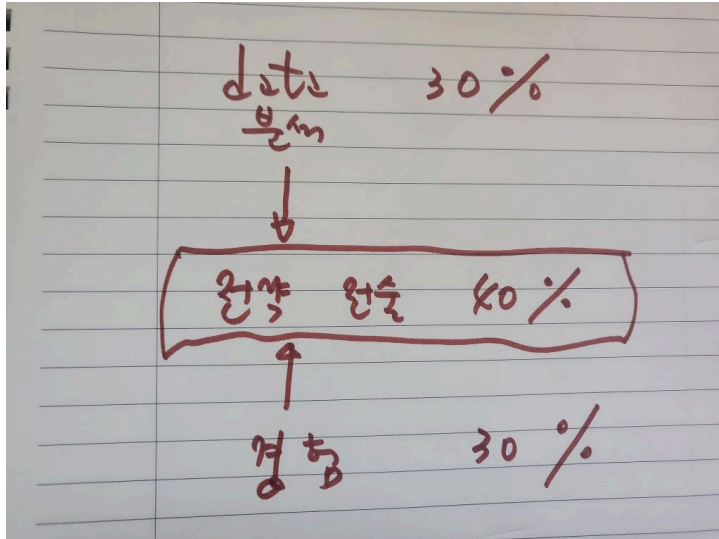 data 30%
분석
전략 전술 40%
경험 30%